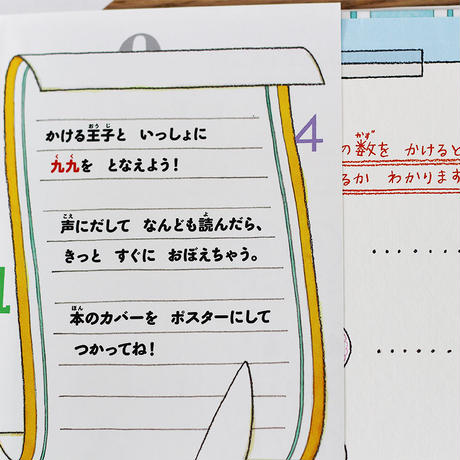 9
4
1
かける王子と いっしょに
九九を となえよう！
声にだして なんども読んだら、
きっと すぐに おぼえちゃう。
本のカバーを ポスターにして
つかってね！
の数を かけると
るか わかります